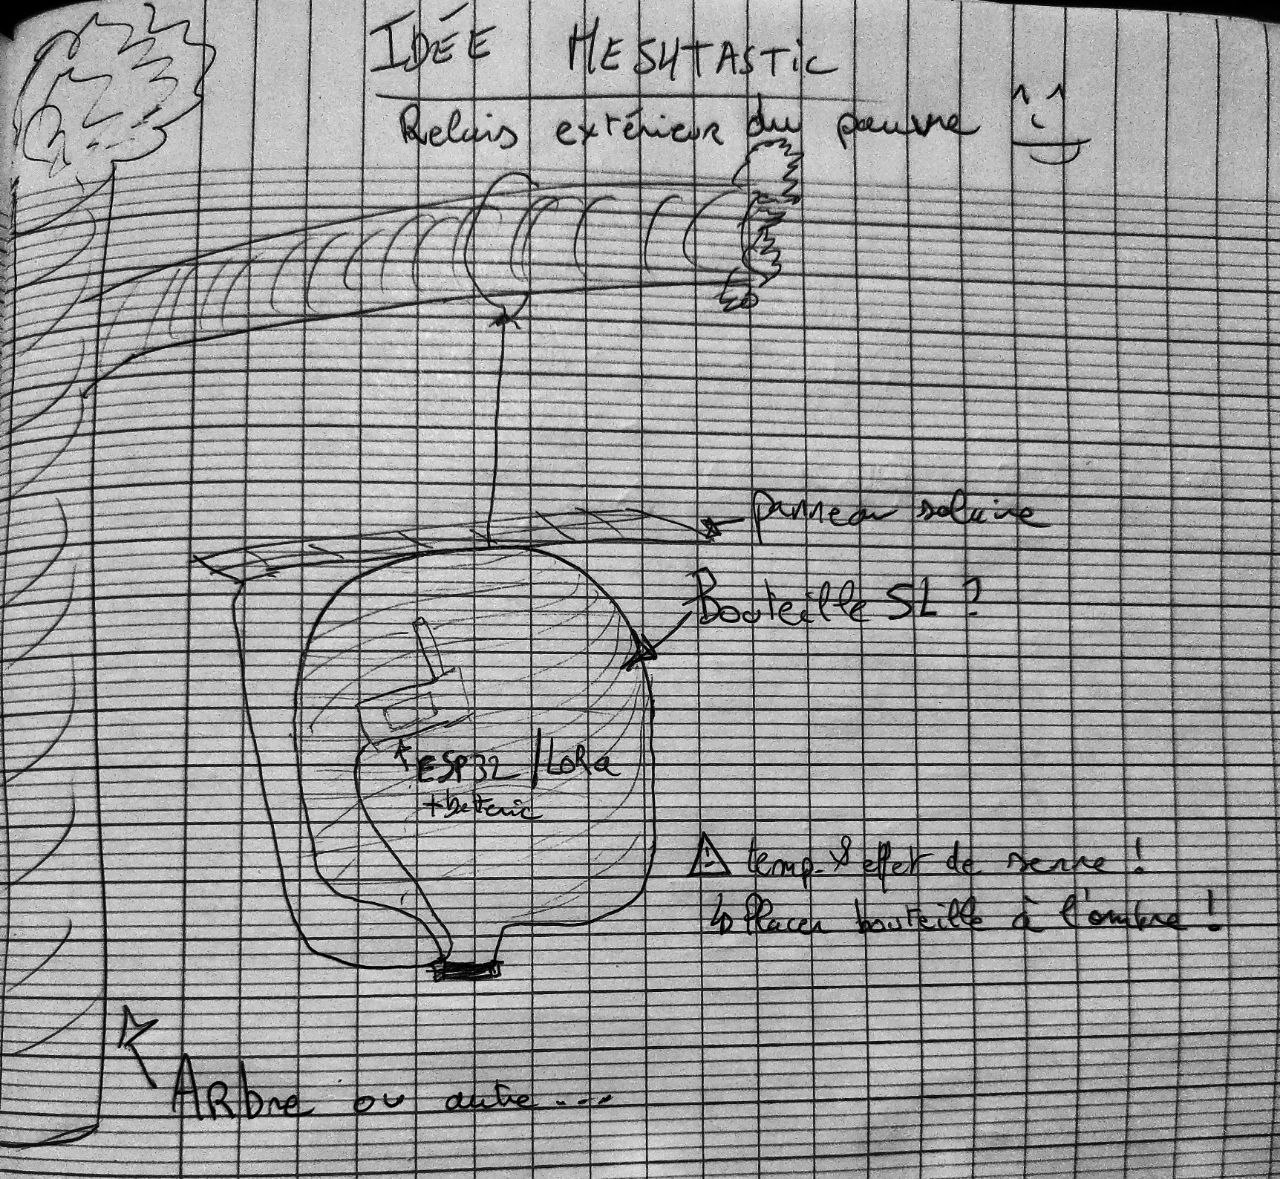 IDÉE MESHTASTIC
Relais extérieur du pauvre
panneau solaire
Bouteille 5L ?
ESP32 / LoRa
+ batterie
⚠ temp. & effet de serre !
↳ Placer bouteille à l'ombre !
ARbre ou autre ...